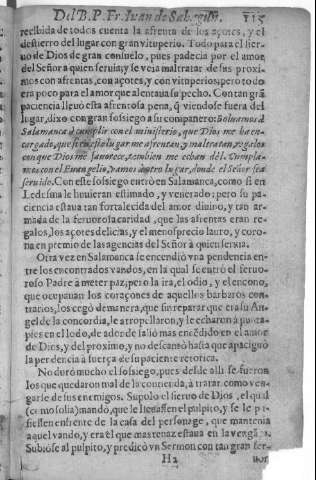 Del B. P. Fr. Iuan de Sahagun. 115
recibida de todos cuenta la afrenta de los açotes, y el
destierro del lugar con gran vituperio. Todo para el sier-
uo de Dios de gran consuelo, pues padecia por el amor
del Señor a quien seruia; y se veia maltratar de sus proxi-
mos con afrentas, con açotes, y con vituperios; pero todo
era poco para el amor que alentaua su pecho. Con tan grã
paciencia lleuò esta afrentosa pena, q̃ viendose fuera del
lugar, dixo con gran sossiego a su compañero: Boluamos à
Salamanca à cumplir con el ministerio, que Dios me ha en-
cargado, que si en este lugar me afrentan, y maltratan, regalos
con que Dios me fauorece, tambien me echan dèl. Cumpla-
mos con el Euangelio, vamos à otro lugar, donde el Señor sea
seruido. Con este sossiego entrò en Salamanca, como si en
Ledesma le huuieran estimado, y venerado; pero su pa-
ciencia estaua tan fortalecida del amor diuino, y tan ar-
mada de la feruorosa caridad, que las afrentas eran re-
galos, los açotes delicias, y el menosprecio lauro, y coro-
na en premio de las agencias del Señor à quien seruia.
Otra vez en Salamanca se encendiò vna pendencia en-
tre los encontrados vandos, en la qual se entrò el feruo-
roso Padre à meter paz; pero la ira, el odio, y el encono,
que ocupauan los coraçones de aquellos barbaros con-
trarios, los cegò de manera, que sin reparar que era su An-
gel de la concordia, le atropellaron, y le echaron à punta-
pies en el lodo, de adonde saliò mas encẽdido en el amor
de Dios, y del proximo, y no descansò hasta que apaciguò
la pendencia à fuerça de su paciente retorica.
No durò mucho el sossiego, pues desde alli se fueron
los que quedaron mal de la contienda, à tratar como ven-
garse de sus enemigos. Supolo el sieruo de Dios, el qual
mandò, que le lleuassen el pulpito, y se le pu-
siessen enfrente de la casa del personage, que mantenia
aquel vando, y era el que mas tenaz estaua en la vengãça.
Subiose al pulpito, y predicò vn Sermon con tan gran fer-
H 2 uor